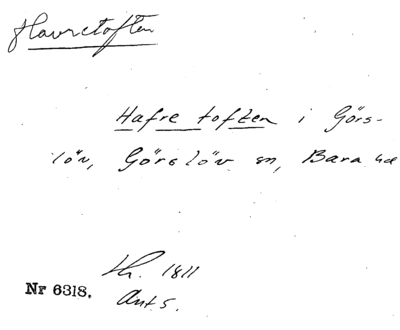 Havretoften
Hafre toften i Görs-
löv, Görslöv sn, Bara hd
Lh. 1811
Nr 6318.
Ant. 5.